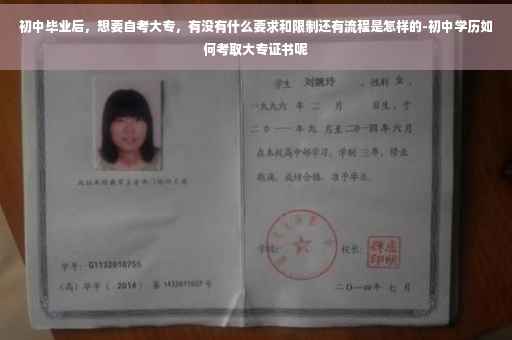 初中毕业后，想要自考大专，有没有什么要求和限制还有流程是怎样的-初中学历如
何考取大专证书呢
学生 刘婉玲 ，性别 女 ，
一九九六 年 二 月 日生，于
二〇一一年九 月至二〇一四年 六 月
在本校高中部学习，学制 三年，修业
期满，成绩合格，准予毕业。
学校： 校长：
学号：G1132010755
（高）毕字（ 2014 ）第 1432011027 号
二〇一四年 七 月